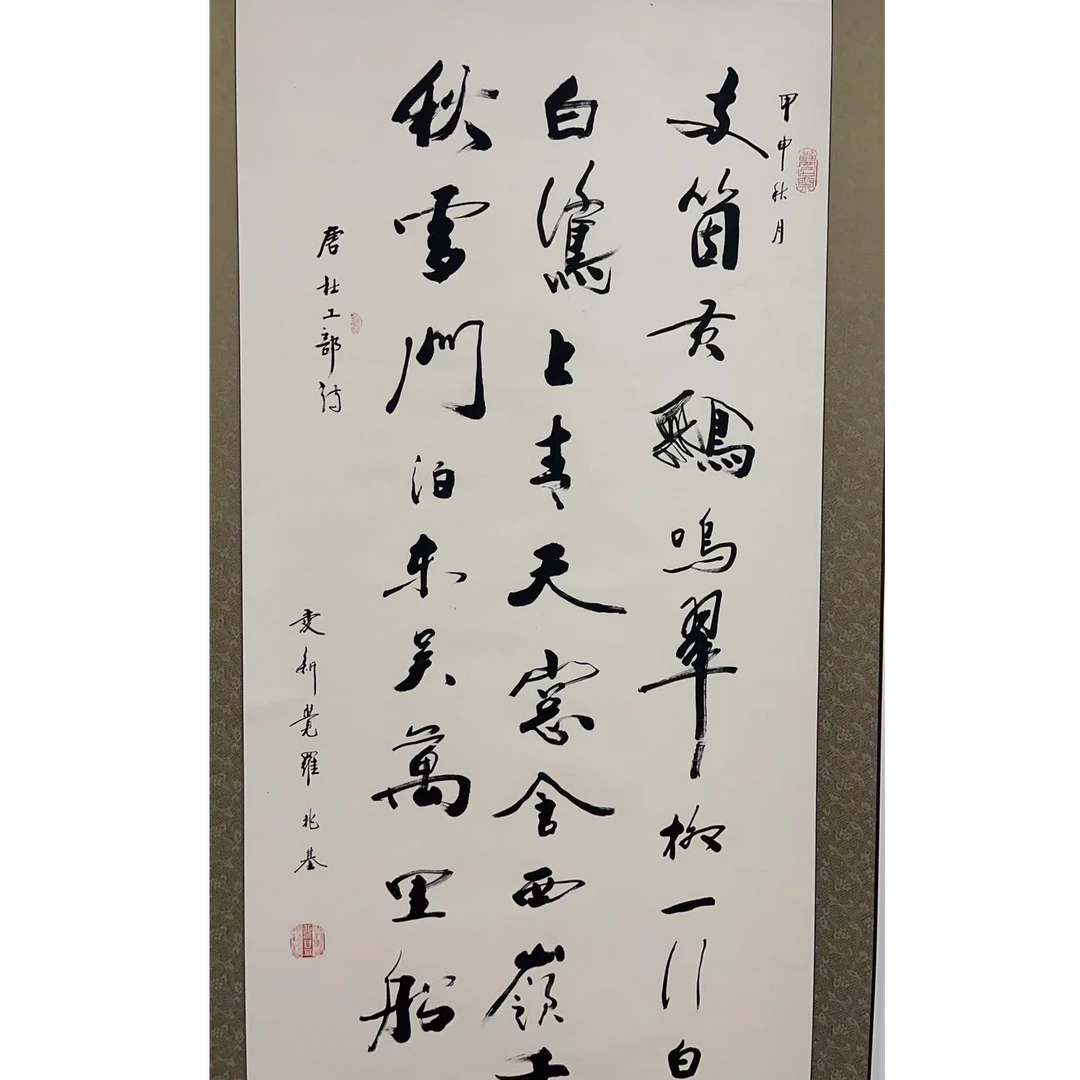 甲申秋月
箇黄鸝鳴翠柳一行白
白鷺上青天窓含西嶺千
秋雪門泊東吳萬里船
唐杜工部詩
愛新覺羅兆基